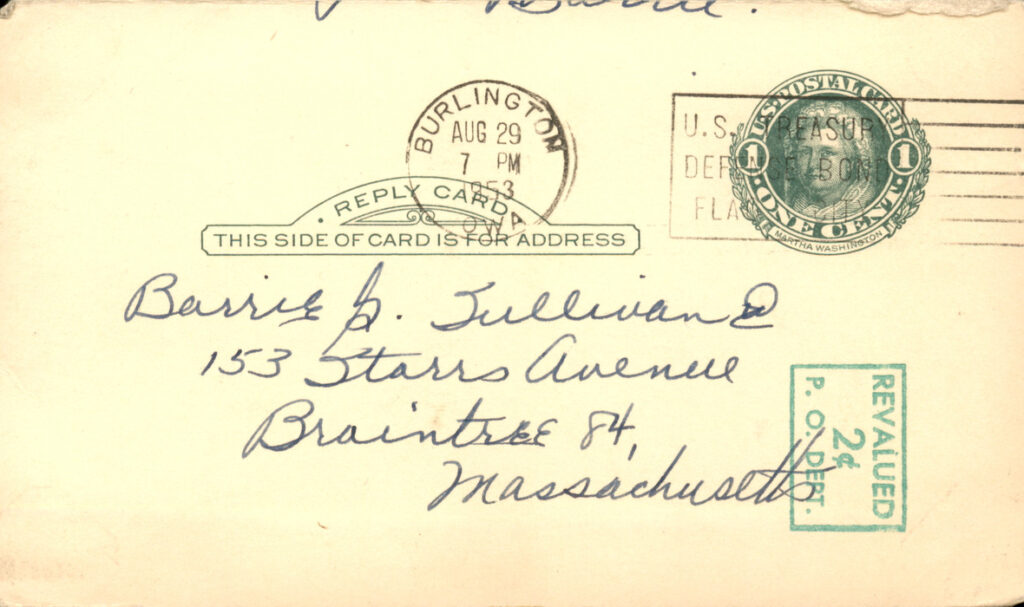 Barrie.
BURLINGTON
AUG 29
7 PM
1953
IOWA
U.S. TREASURY
DEFENSE BONDS
FLA
U.S. POSTAL CARD
1 1
ONE CENT.
MARTHA WASHINGTON
REPLY CARD
THIS SIDE OF CARD IS FOR ADDRESS
Barrie G. Sullivan 2
153 Starrs Avenue
Braintree 84,
Massachusetts
REVALUED
2¢
P. O. DEPT.